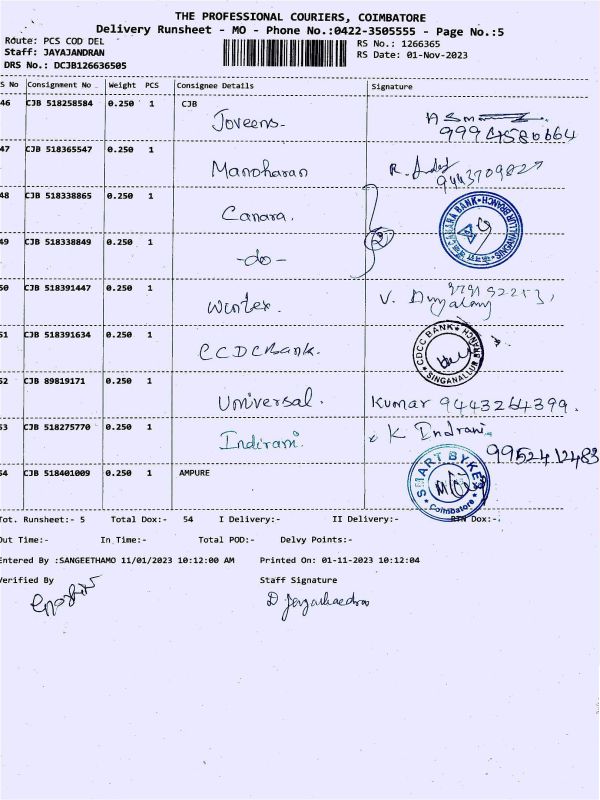 THE PROFESSIONAL COURIERS, COIMBATORE
Delivery Runsheet - MO - Phone No.:0422-3505555 - Page No.:5
Route: PCS COD DEL
RS No.: 1266365
Staff: JAYAJANDRAN
RS Date: 01-Nov-2023
DRS No.: DCJB126636505
S No Consignment No Weight PCS Consignee Details Signature
46 CJB 518258584 0.250 1 CJB
Joveens.
47 CJB 518365547 0.250 1
Manoharan R.
9443709827
48 CJB 518338865 0.250 1
Canara.
CANARA BANK SINGANALLUR BRANCH
49 CJB 518338849 0.250 1
-do- 2
50 CJB 518391447 0.250 1
Wintex. V.
51 CJB 518391634 0.250 1
CCDC Bank.
CDCC BANK SINGANALLUR BRANCH
52 CJB 89819171 0.250 1
Universal. Kumar 9443264399.
53 CJB 518275770 0.250 1
Indirani. K Indrani.
99524 12483
54 CJB 518401009 0.250 1 AMPURE
SMART BYKES Coimbatore
Tot. Runsheet:- 5 Total Dox:- 54 I Delivery:- II Delivery:- RTN Dox:-
Out Time:- In Time:- Total POD:- Delvy Points:-
Entered By :SANGEETHAMO 11/01/2023 10:12:00 AM Printed On: 01-11-2023 10:12:04
Verified By Staff Signature
D Jayachandran